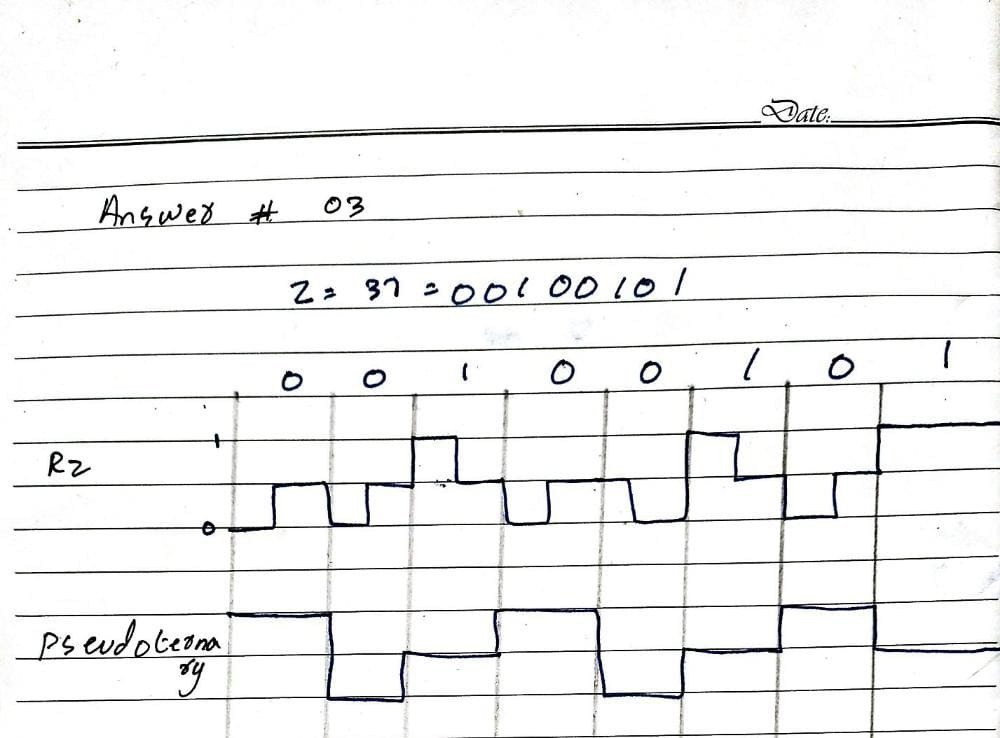 Date:
Answer # 03
Z = 37 = 00100101
0 0 1 0 0 1 0 1
1
RZ
0
Pseudoterna
ry